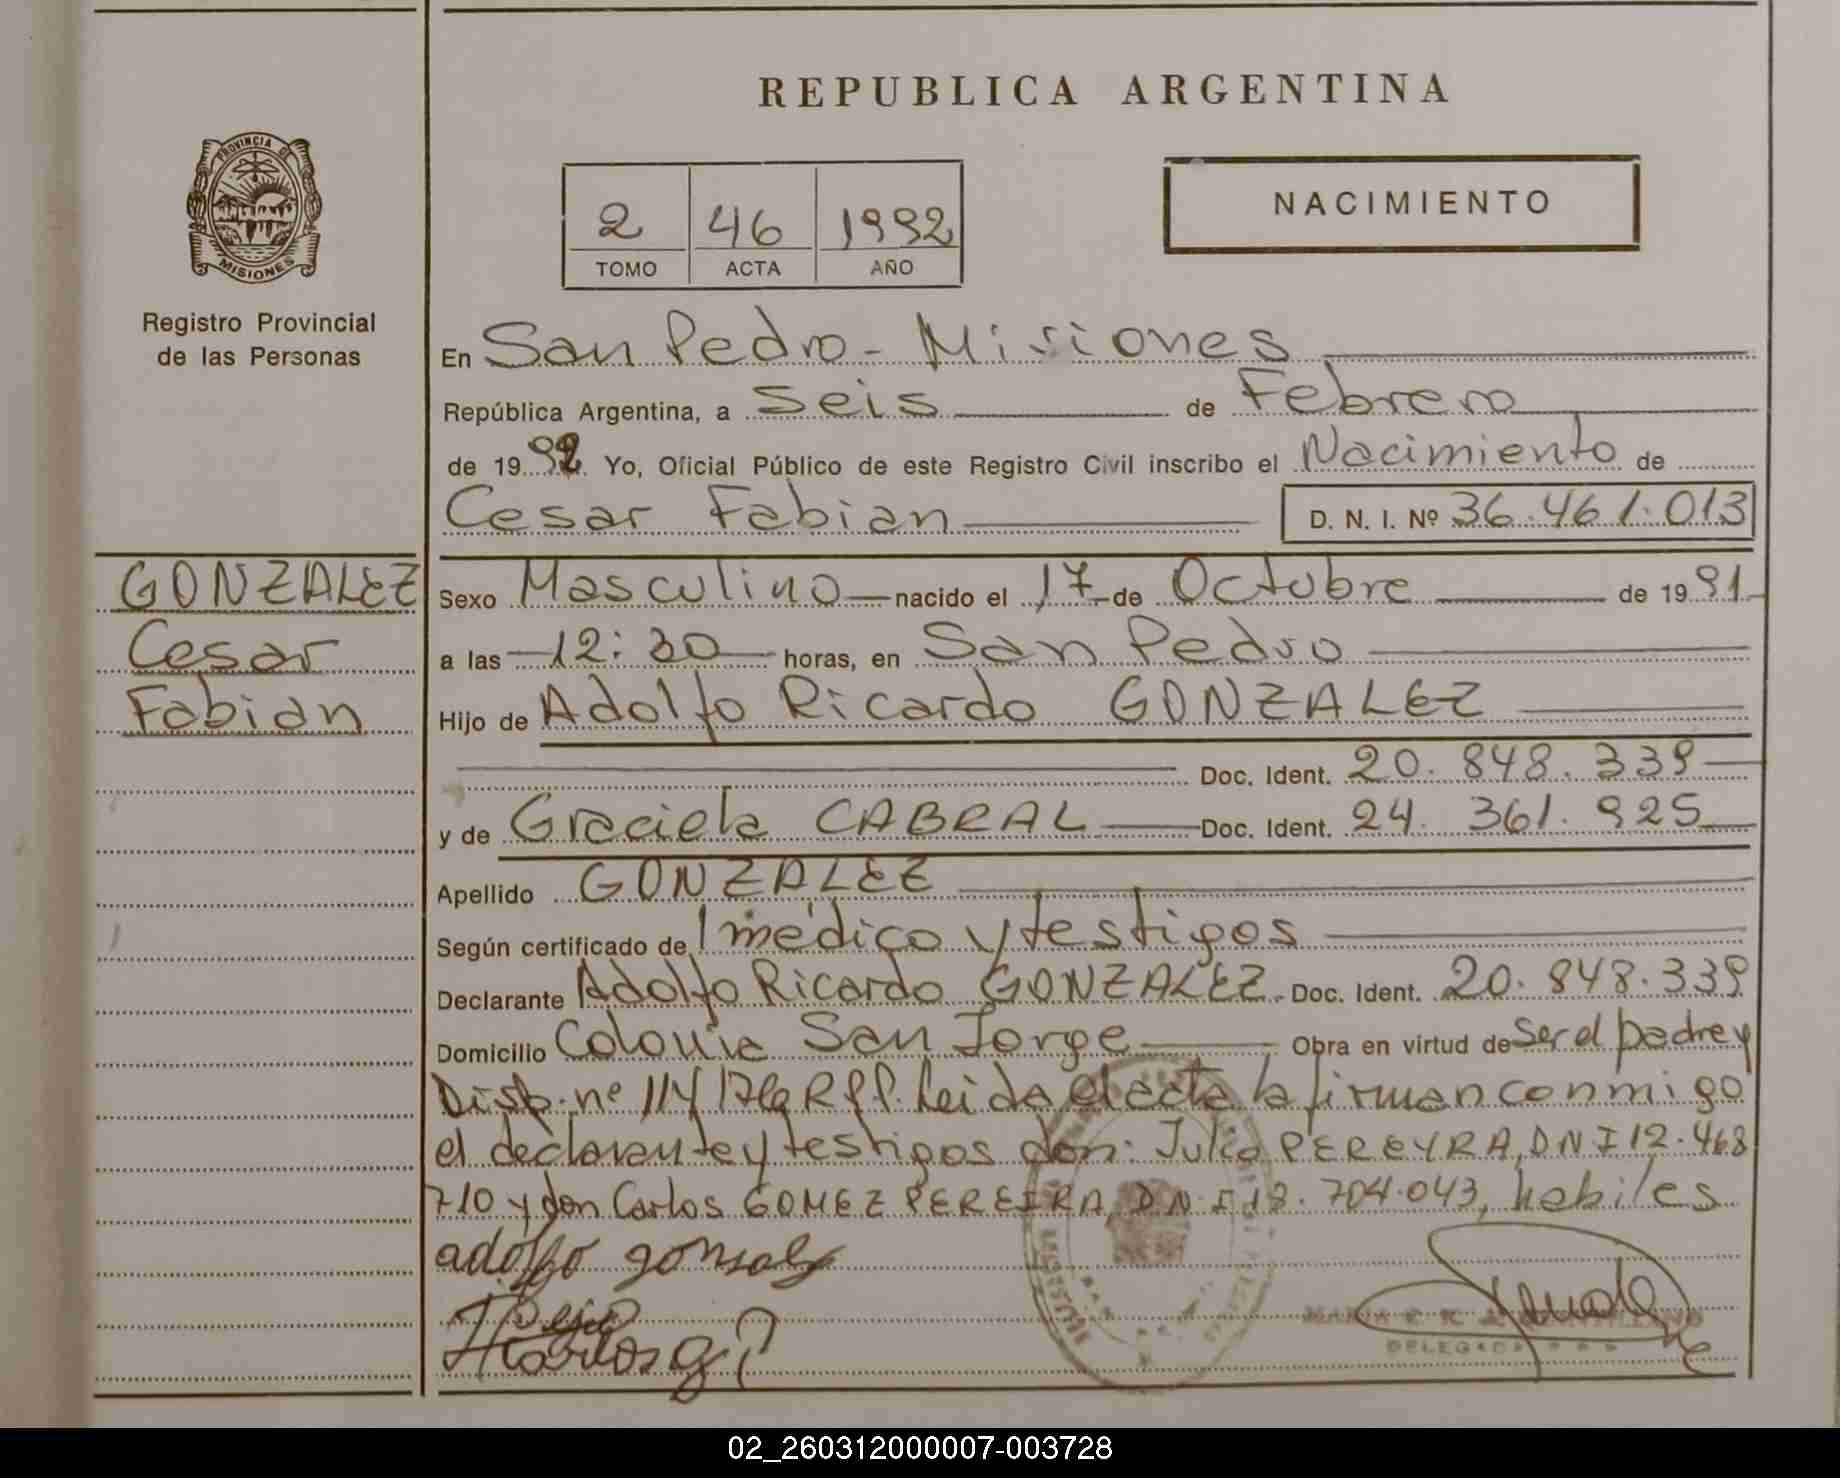 REPUBLICA ARGENTINA
PROVINCIA DE
MISIONES
Registro Provincial
de las Personas
2 46 1992
TOMO ACTA AÑO
NACIMIENTO
En San Pedro - Misiones
República Argentina, a seis de Febrero
de 1992 Yo, Oficial Público de este Registro Civil inscribo el Nacimiento de
Cesar Fabian D. N. I. Nº 36.461.013
GONZALEZ
Cesar
Fabian
Sexo Masculino nacido el 17 de Octubre de 1991
a las 12:30 horas, en San Pedro
Hijo de Adolfo Ricardo GONZALEZ
Doc. Ident. 20.848.339
y de Graciela CABRAL Doc. Ident. 24.361.925
Apellido GONZALEZ
Según certificado de médico y testigos
Declarante Adolfo Ricardo GONZALEZ Doc. Ident. 20.848.339
Domicilio Colonia San Jorge Obra en virtud de ser el padre y
Disp. nº 114/ Leida el acta la firman conmigo
el declarante y testigos don: Julio PEREYRA, DNI 12.468
710 y don Carlos GOMEZ PEREIRA, DNI 18.704.043, habiles
adolfo
DELEGADA
02_260312000007-003728